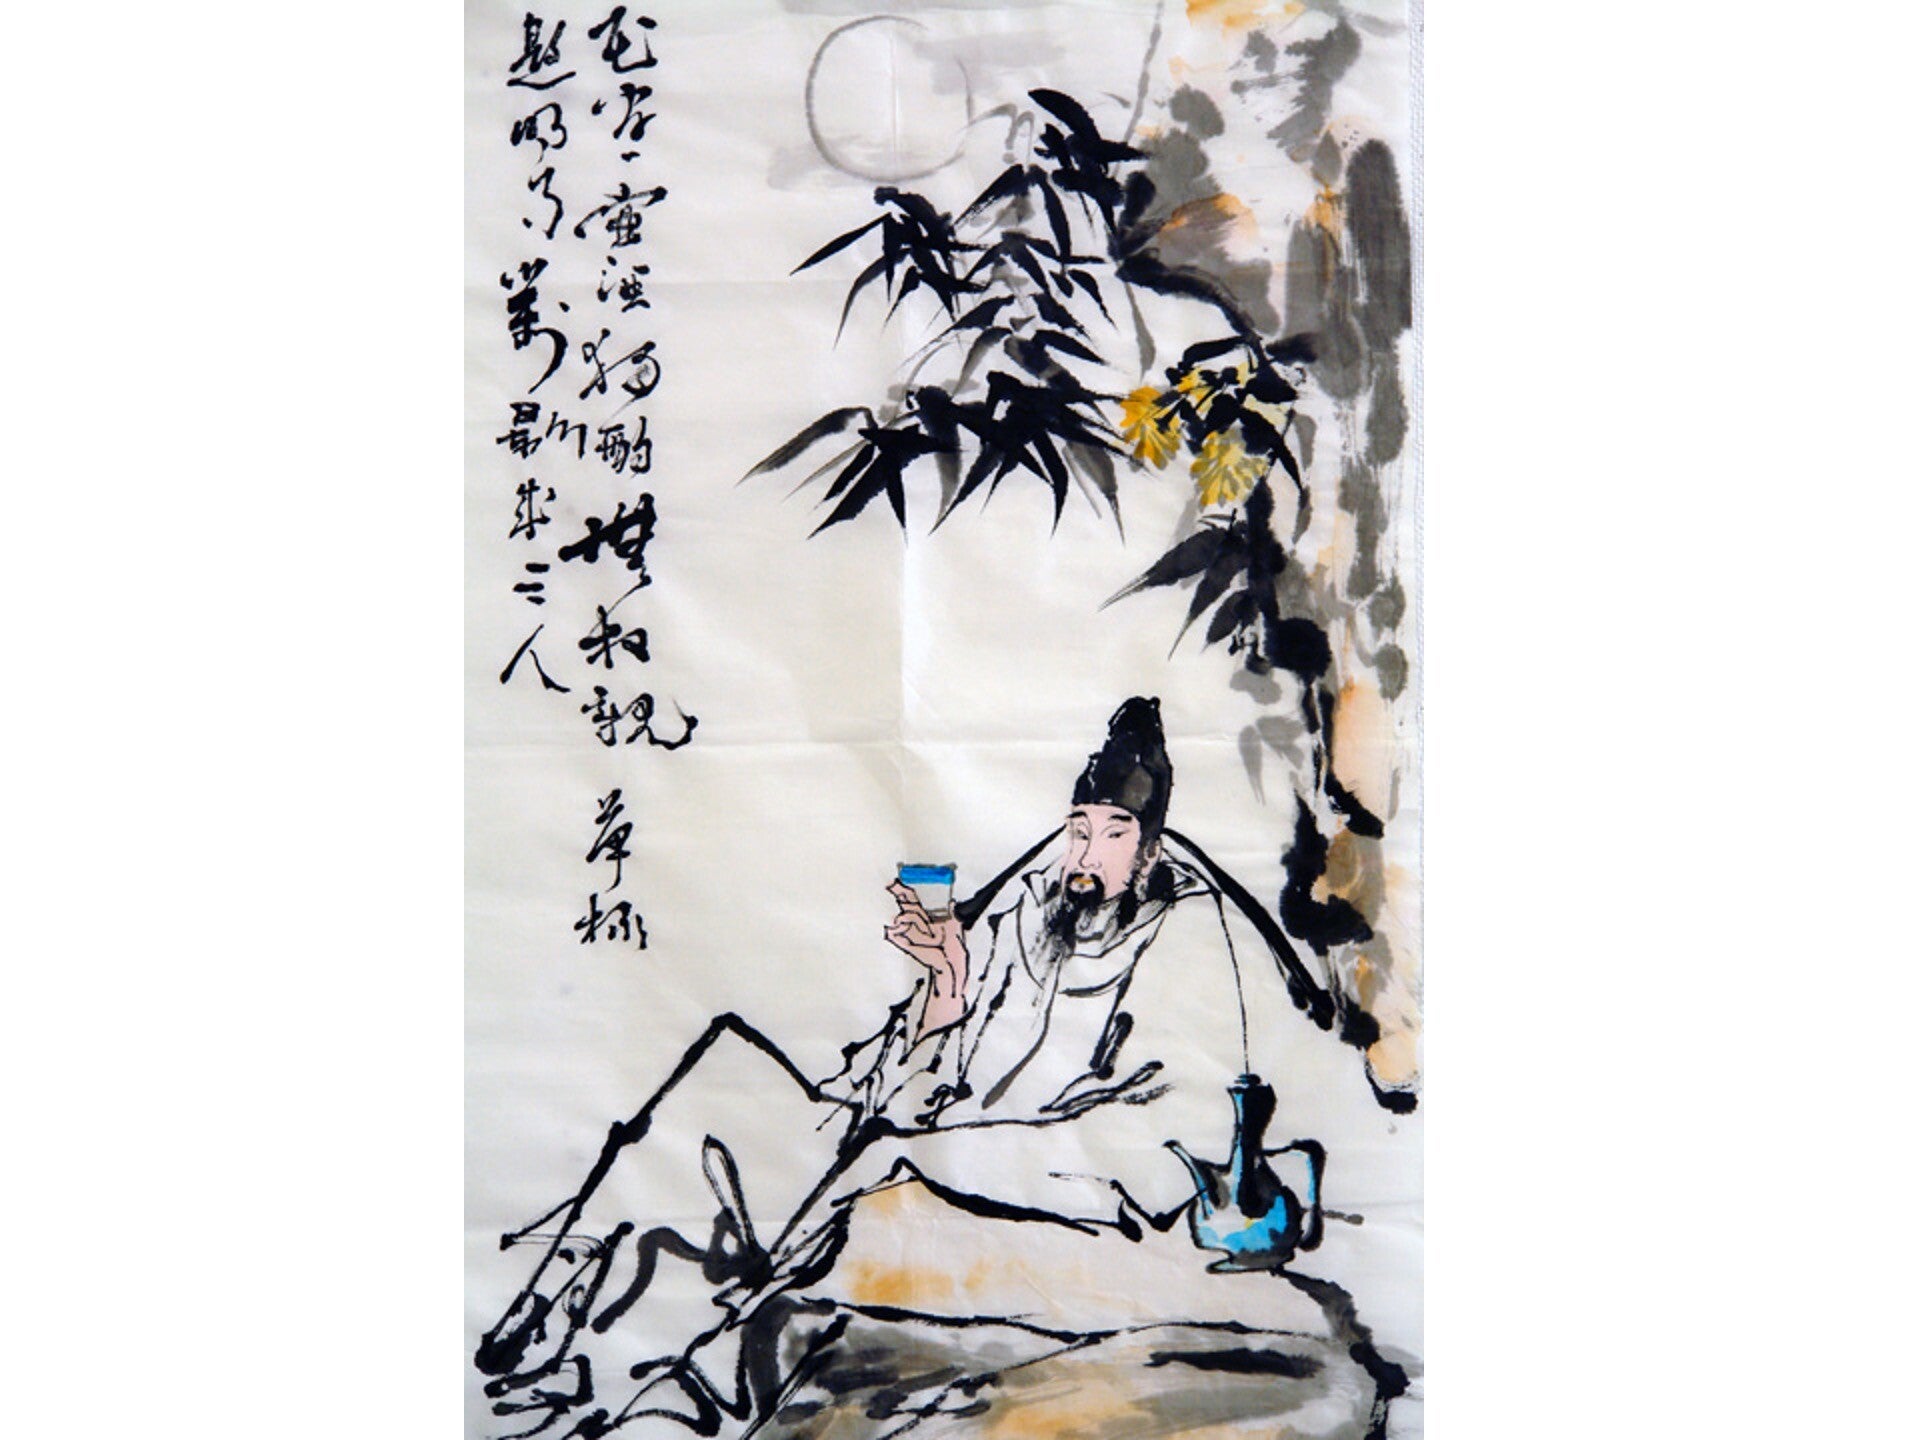 花間一壺酒獨酌無相親舉杯
邀明月對影成三人